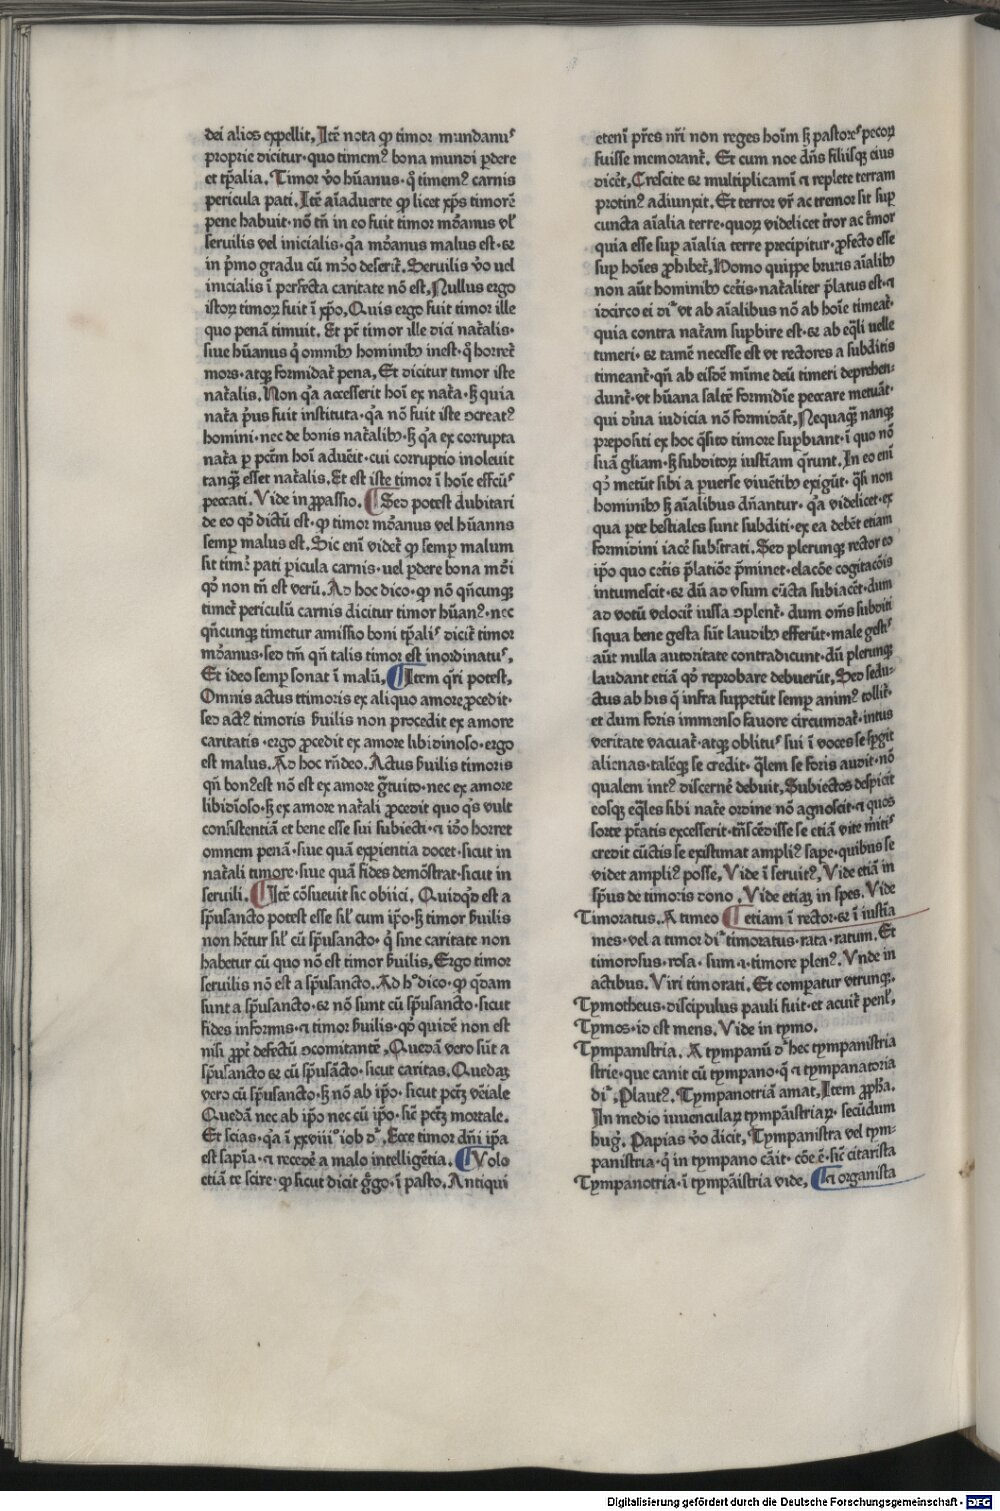 dei alios expellit, Itē nota ꝙ timor mundanuˢ
proprie dicitur·quo timemꝰ bona mundi ꝑdere
et tꝑalia. Timor v̊o hūanus·q̄ timemꝰ carnis
pericula pati. Itē aīaduerte ꝙ licet xp̄s timorē
pene habuit·nō tn̄ in eo fuit timor mōanus vl̓
seruilis vel inicialis·qa mōanus malus est·⁊
in p̄mo gradu cū mōo deserit᷑. Seruilis v̊o uel
inicialis ī ꝑfecta caritate nō est, Nullus ergo
istoꝝ timoꝝ fuit ī xp̄o, Quis ergo fuit timor ille
quo penā timuit. Et pt̄ timor ille dici nat᷑alis·
siue hūanus q̓ omnibꝫ hominibꝫ inest·q̄ horret᷑
mors·atqꝫ formidat᷑ pena, Et dicitur timor iste
nat᷑alis. Non qa accesserit hoī ex nat᷑a·ſꝫ quia
nat᷑a p̓us fuit instituta·qa nō fuit iste ↄcreatꝰ
homini·nec de bonis nat᷑alibꝫ·ſꝫ qa ex corrupta
nat᷑a ꝑ pctm̄ hoī aduēit·cui corruptio inoleuit
tanqꝫ esset nat᷑alis. Et est iste timor ī hoīe effcūˢ
peccati. Vide in ꝓpassio. ¶ Sed potest dubitari
de eo qd̓ dictū est·ꝙ timor mōanus vel hūanns
semꝑ malus est. Sic enī videt᷑ ꝙ semꝑ malum
sit timē pati ꝑicula carnis·uel ꝑdere bona mōi
qd̓ non tn̄ est verū. Ad hoc dico·ꝙ nō qn̄cunqꝫ
timet᷑ periculū carnis dicitur timor hūanꝰ·nec
qn̄cunqꝫ timetur amissio boni tꝑaliˢ dicit᷑ timor
mōanus·sed tm̄ qn̄ talis timor est inordinatuˢ,
Et ideo semꝑ sonat ī malū, ¶ Item q̄ri potest,
Omnis actus ttimoris ex aliquo amore ꝓcedit·
sed actꝰ timoris ẜuilis non procedit ex amore
caritatis·ergo ꝓcedit ex amore libidinoso·ergo
est malus. Ad hoc rn̄deo. Actus ẜuilis timoris
qn̄ bonꝰest nō est ex amore gͣtuito·nec ex amore
libidīoso·ſꝫ ex amore nat᷑ali ꝓcedit quo qͥs vult
consistentiā et bene esse sui subiecti·⁊ iō̄o horret
omnem penā·siue quā exꝑientia docet·sicut in
nat᷑ali timore·siue quā fides demōstrat·sicut in
seruili. ¶ Itē cōsueuit sic obiici. Quidqͥd est a
sp̄usancto potest esse sil̓ cum ip̄o·ſꝫ timor ẜuilis
non hētur sil̓ cū sp̄usancto·q̓ sine caritate non
habetur cū quo nō est timor ẜuilis, Ergo timor
seruilis nō est a sp̄usancto. Ad h̊ dico·ꝙ qͥdam
sunt a sp̄usancto·⁊ nō sunt cū sp̄usancto·sicut
fides informis·⁊ timor ẜuilis·qd̓ quidē non est
nisi ꝓpt̓ defectū ↄcomitantē, Quedā vero sūt a
sp̄usancto ⁊ cū sp̄usācto·sicut caritas. Quedaꝫ
vero cū sp̄usancto·ſꝫ nō ab ip̄o·sicut pctꝫ vēiale
Quedā nec ab ip̄o nec cū ip̄o·sic̄ pctꝫ mortale.
Et scias·qa ī xxviiiᵒ iob dꝛ, Ecce timor dn̄i ip̄a
est sapīa·⁊ recedē a malo intelligētia. ¶ Volo
etiā te scire·ꝙ sicut dicit gͣgo·ī pasto. Antiqui
etenī pr̄es nr̄i non reges hoīm ſꝫ pastoreˢ pecoꝝ
fuisse memorant᷑. Et cum noe dn̄s filiisqꝫ eius
dicēt, Crescite ⁊ multiplicamī ⁊ replete terram
protinꝰ adiunxit. Et terror vr̄ ac tremor sit suꝑ
cuncta aīalia terre·quoꝝ videlicet t᷑ror ac t᷑mor
quia esse suꝑ aīalia terre precipitur·ꝓfecto esse
suꝑ hoīes ꝓhibet᷑, Homo quippe brutis aīalibꝫ
non aūt hominibꝫ cet᷑is·nat᷑aliter p̄latus est·⁊
idcirco ei dꝛ vt ab aīalibus nō ab hoīe timeat᷑·
quia contra nat᷑am suꝑbire est·⁊ ab eq̄li uelle
timeri·⁊ tamē necesse est vt rectores a subditis
timeant᷑·qn̄ ab eisdē mīme deū timeri deprehen-
dunt᷑·vt hūana saltē formidīe peccare metuāt·
qui dīna iudicia nō formidāt, Nequaqꝫ nanqꝫ
prepositi ex hoc q̄sito timore suꝑbiant·ī quo nō
suā gl̄iam·ſꝫ subditoꝝ iustīam q̄runt. In eo enī
qd̓ metūt sibi a puerse viuētibꝫ exigūt·q̄si non
hominibꝫ ſꝫ aīalibus dn̄antur·qa videlicet·ex
qua ꝑte bestiales sunt subditi·ex ea debēt etiam
formidini iacē substrati. Sed plerunqꝫ rector eo
ip̄o quo cet᷑is p̄latiōe p̄minet·elacōe cogitacōis
intumescit·⁊ dū ad vsum cūcta subiacēt·dum
ad votū velocit᷑ iussa ↄplent᷑·dum om̄s subditi
siqua bene gesta sūt laudibꝫ efferūt·male gestiˢ
aūt nulla autoritate contradicunt·dū plerunqꝫ
laudant etiā qd̓ reprobare debuerūt, Sed sedu-
ctus ab his q̓ infra suppetūt semꝑ animꝰ tollit᷑·
et dum foris immenso fauore circumdat᷑·intus
veritate vacuat᷑·atqꝫ oblituˢ sui ī voces se sꝑgit
alienas·talēqꝫ se credit·q̄lem se foris audit·nō
qualem intꝰ discernē debuit, Subiectos despicit
eosqꝫ eq̄les sibi nat᷑e ordine nō agnoscit·⁊ quos
sorte pt̄atis excesserit·tn̄scēdisse se etiā vite m̓itiˢ
credit cūctis se existimat ampliꝰ sape·quibus se
videt ampliꝰ posse, Vide ī seruitꝰ, Vide etiā in
sp̄us de timoris dono. Vide etiaꝫ in spes. Vide
Timoratus. A timeo ¶ etiam ī rector·⁊ ī iustīa
mes·vel a timor dꝛ timoratus·rata·ratum. Et
timorosus·rosa·sum·⁊·timore plenꝰ. Vnde in
actibus. Viri timorati. Et comꝑatur vtrunqꝫ.
Tymotheus·discipulus pauli fuit·et acuit᷑ penl̓,
Tymos·id est mens. Vide in tymo.
Tympanistria. A tympanū dꝛ hec tympanistria
strie·que canit cū tympano·q̄ ⁊ tympanatoria
dꝛ, Plautꝰ. Tympanotriā amat, Item ꝓpħa.
In medio iuuenculaꝝ tympāistriaꝝ·secūdum
hug̓. Papias v̊o dicit, Tympanistra vel tym-
panistria·q̓ in tympano cāit·cōe ē·sic̄ citarista
Tympanotria·ī tympāistria vide, ¶ ⁊ organista
Digitalisierung gefördert durch die Deutsche Forschungsgemeinschaft - DFG